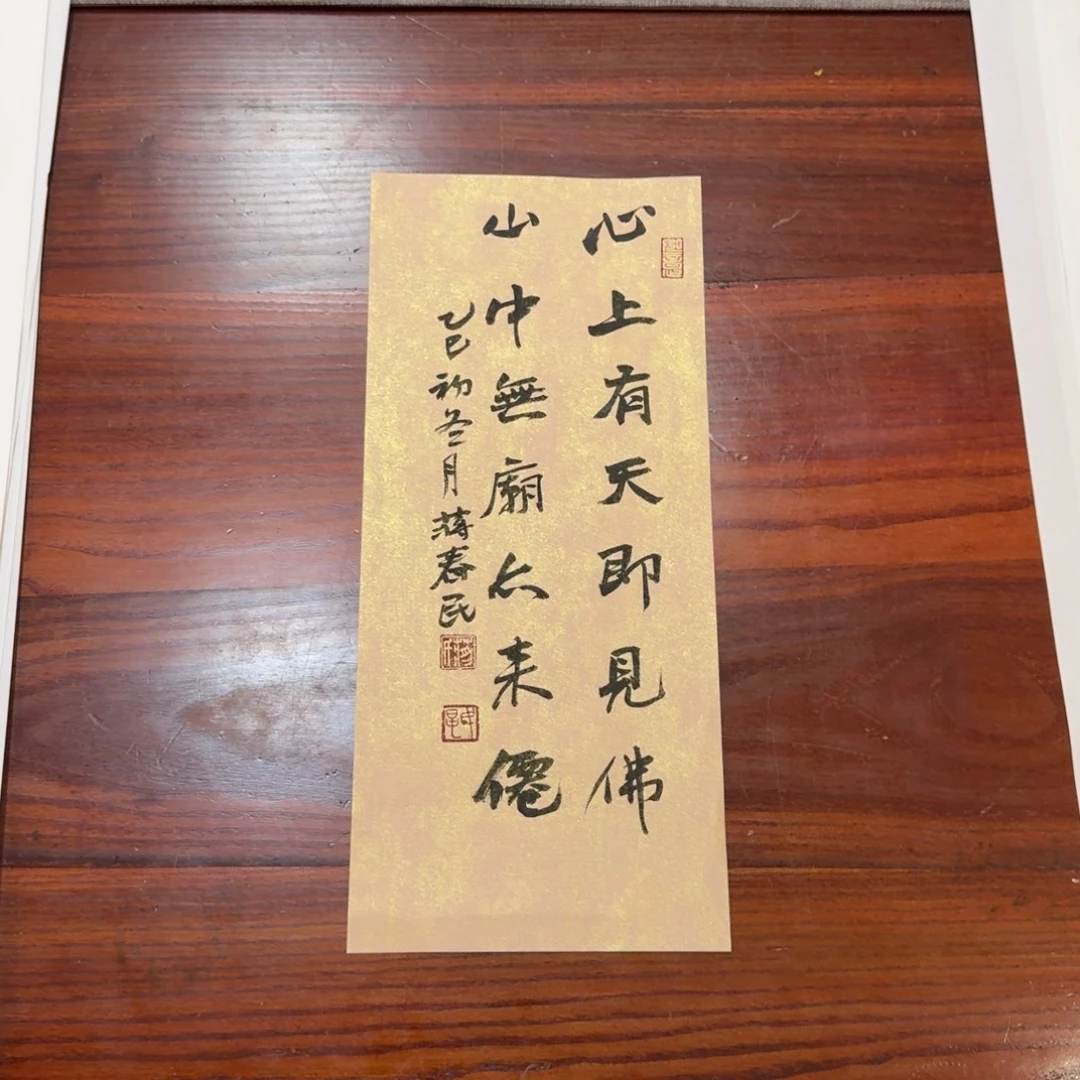 心上有天即見佛
山中無廟亦来僊
乙巳初冬月蒋春民